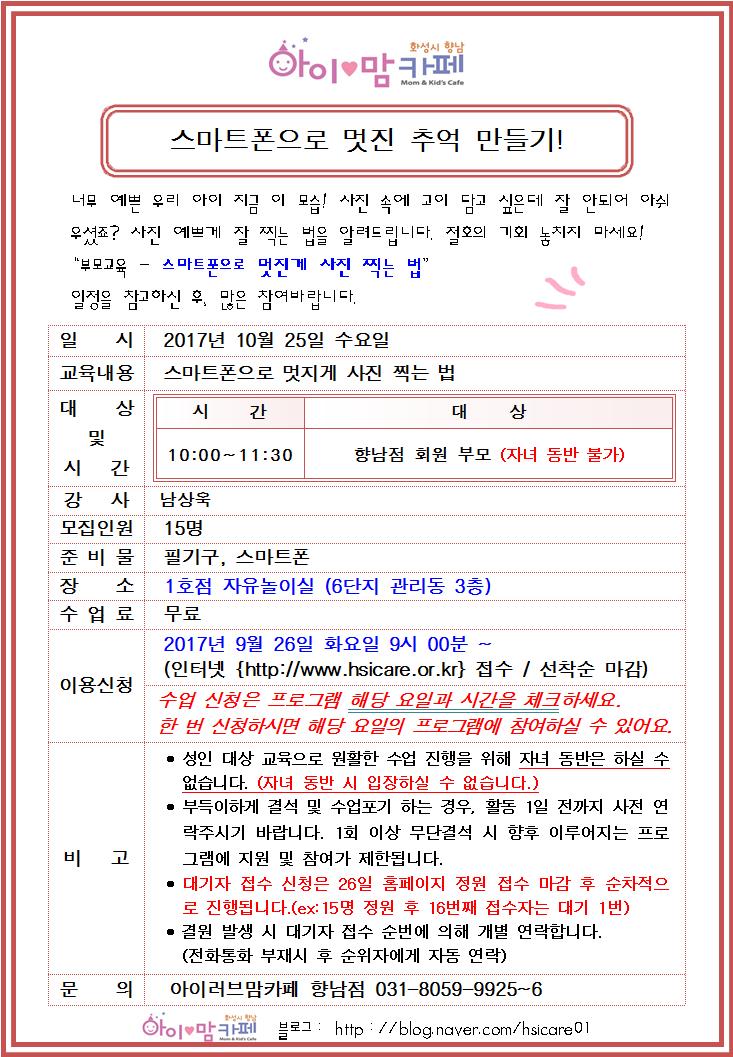 화성시 향남
아이♥맘카페
Mom & Kid's Cafe
스마트폰으로 멋진 추억 만들기!
너무 예쁜 우리 아이 지금 이 모습! 사진 속에 고이 담고 싶은데 잘 안되어 아쉬
우셨죠? 사진 예쁘게 잘 찍는 법을 알려드립니다. 절호의 기회 놓치지 마세요!
"부모교육 - 스마트폰으로 멋진게 사진 찍는 법"
일정을 참고하신 후, 많은 참여바랍니다.
일 시 2017년 10월 25일 수요일
교육내용 스마트폰으로 멋지게 사진 찍는 법
대 상 및 시 간
시 간 대 상
10:00~11:30 향남점 회원 부모 (자녀 동반 불가)
강 사 남상욱
모집인원 15명
준 비 물 필기구, 스마트폰
장 소 1호점 자유놀이실 (6단지 관리동 3층)
수 업 료 무료
이용신청
2017년 9월 26일 화요일 9시 00분 ~
(인터넷 {http://www.hsicare.or.kr} 접수 / 선착순 마감)
수업 신청은 프로그램 해당 요일과 시간을 체크하세요.
한 번 신청하시면 해당 요일의 프로그램에 참여하실 수 있어요.
비 고
• 성인 대상 교육으로 원활한 수업 진행을 위해 자녀 동반은 하실 수
없습니다. (자녀 동반 시 입장하실 수 없습니다.)
• 부득이하게 결석 및 수업포기 하는 경우, 활동 1일 전까지 사전 연
락주시기 바랍니다. 1회 이상 무단결석 시 향후 이루어지는 프로
그램에 지원 및 참여가 제한됩니다.
• 대기자 접수 신청은 26일 홈페이지 정원 접수 마감 후 순차적으
로 진행됩니다.(ex:15명 정원 후 16번째 접수자는 대기 1번)
• 결원 발생 시 대기자 접수 순번에 의해 개별 연락합니다.
(전화통화 부재시 후 순위자에게 자동 연락)
문 의 아이러브맘카페 향남점 031-8059-9925~6
화성시 향남
아이♥맘카페
Mom & Kid's Cafe
블로그 : http://blog.naver.com/hsicare01